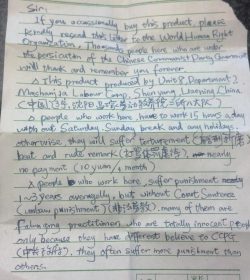 Sir:
If you occasionally buy this product, please
kindly resend this letter to the World Human Right
Organization. Thousands people here who are under
the persicution of the Chinese Communist Party Government
will thank and remember you forever.
This product produced by Unit 8, Department 2,
Masanjia Labour Camp, Shenyang, Liaoning, China.
(中国,辽宁,沈阳,马三家
people who work here have to work 15 hours a day
without Saturday, Sunday break and any holidays,
otherwise, they will suffer torturement
beat and rude remark nearly
no payment (10 yuan / 1 month)
people who work here, suffer punishment nearly
1~3 years averagely, but without Court Sentence
(unlaw punishment) (非法劳教) many of them are
Falungong practitioner, who are totally innocent people
only because they have different believe to CCPG
they often suffer more punishment than
others.